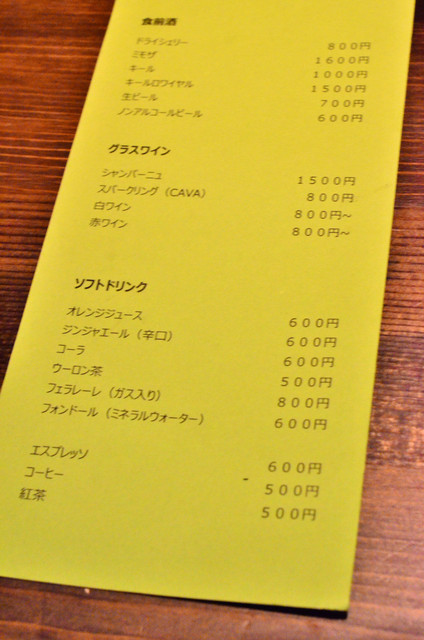 食前酒
ドライシェリー 800円
ミモザ 1600円
キール 1000円
キールロワイヤル 1500円
生ビール 700円
ノンアルコールビール 600円
グラスワイン
シャンパーニュ 1500円
スパークリング（CAVA） 800円
白ワイン 800円~
赤ワイン 800円~
ソフトドリンク
オレンジジュース 600円
ジンジャエール（辛口） 600円
コーラ 600円
ウーロン茶 500円
フェラレーレ（ガス入り） 800円
フォンドール（ミネラルウォーター） 600円
エスプレッソ 600円
コーヒー 500円
紅茶 500円